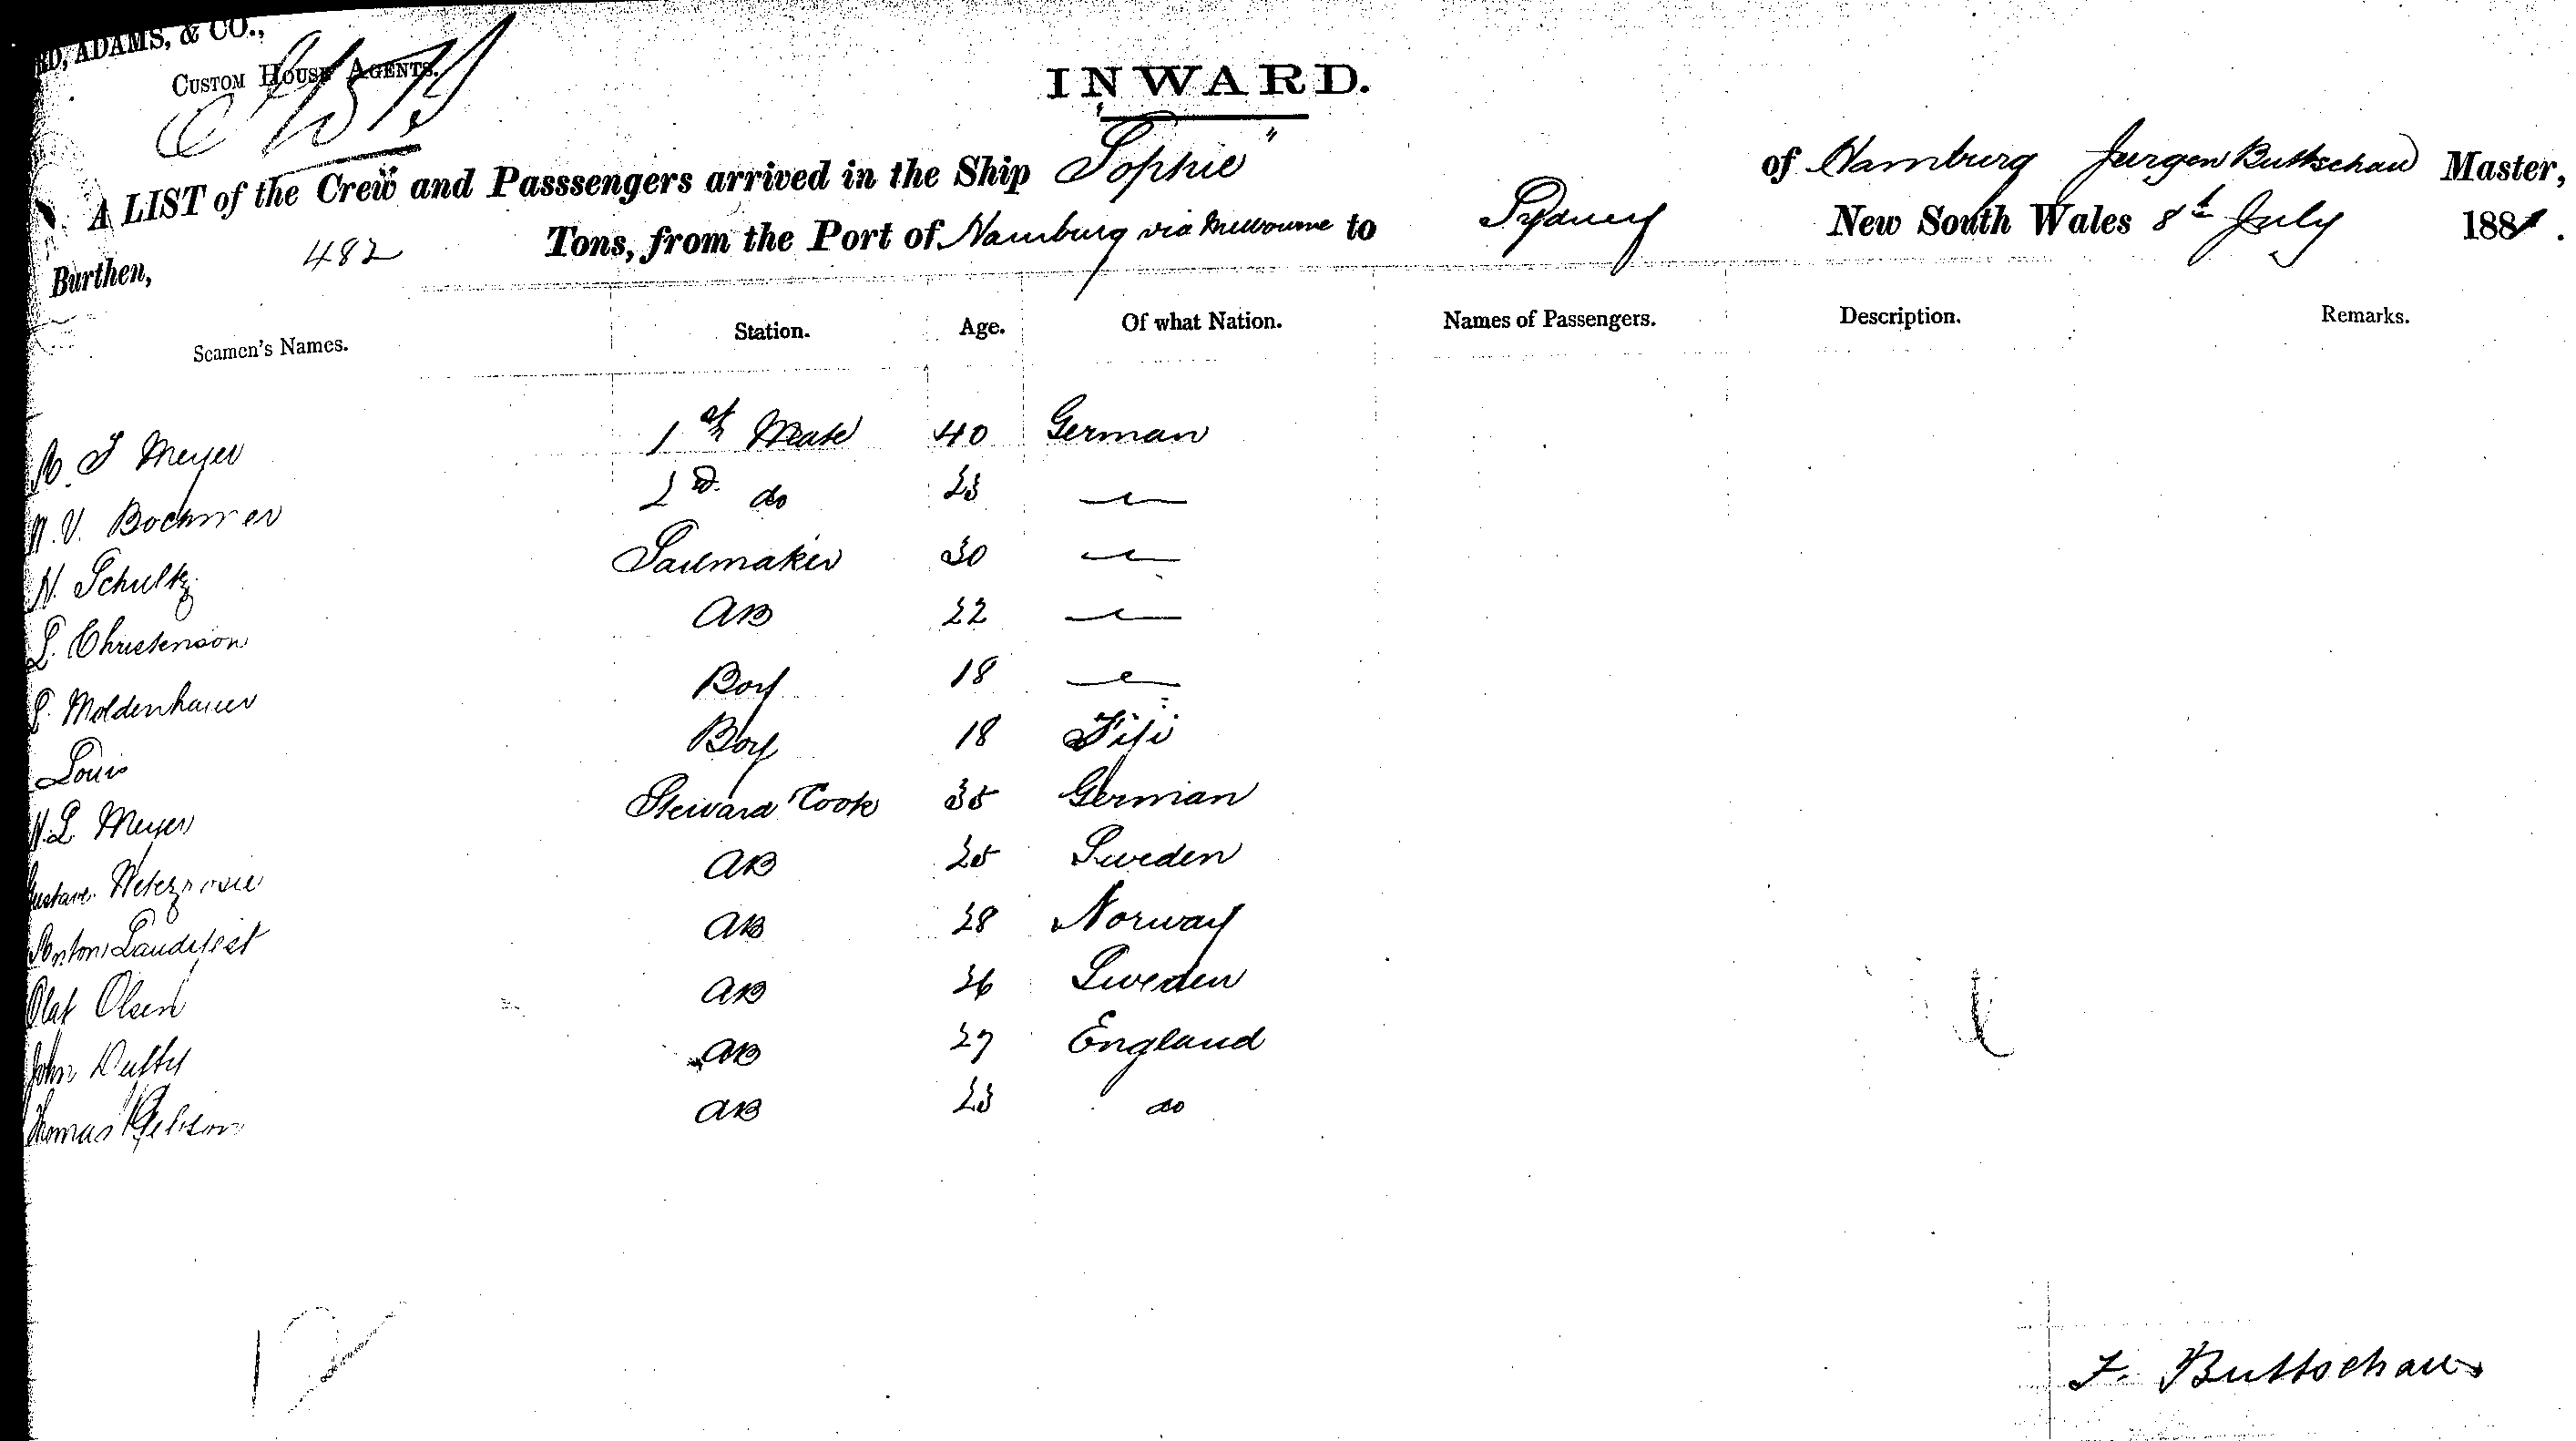 RD, ADAMS, & CO.,
CUSTOM HOUSE AGENTS.
INWARD.
A LIST of the Crew and Passsengers arrived in the Ship "Sophie" of Hamburg Jurgen Buttschau Master,
Burthen, 482 Tons, from the Port of Hamburg via Melbourne to Sydney New South Wales 8th July 1881.
Seamen's Names. Station. Age. Of what Nation. Names of Passengers. Description. Remarks.
Meyer 1st Mate 40 German
V. Boehmer 2d do 23 —"—
H. Schultz Sailmaker 30 —"—
L. Christenson AB 22 —"—
Moldenhauer Boy 18 —"—
Louis Boy 18 Fiji
H. L. Meyer Steward Cook 35 German
Gustave AB 25 Sweden
Anton AB 28 Norway
Olaf Olsen AB 26 Sweden
John Duffy AB 27 England
Thomas AB 23 do
12
J. Buttschau